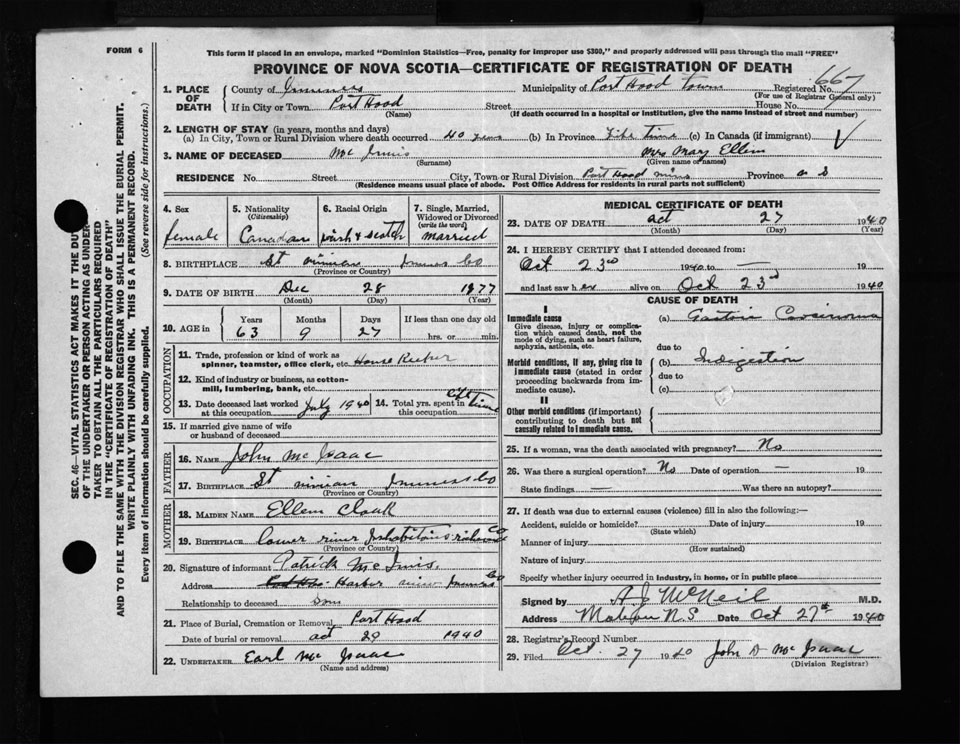 FORM 6
This form if placed in an envelope, marked "Dominion Statistics—Free, penalty for improper use $300," and properly addressed will pass through the mail "FREE"
PROVINCE OF NOVA SCOTIA—CERTIFICATE OF REGISTRATION OF DEATH
SEC. 46—VITAL STATISTICS ACT MAKES IT THE DUTY
OF THE UNDERTAKER OR PERSON ACTING AS UNDER-
TAKER TO OBTAIN ALL THE PARTICULARS REQUIRED
IN THE "CERTIFICATE OF REGISTRATION OF DEATH"
AND TO FILE THE SAME WITH THE DIVISION REGISTRAR WHO SHALL ISSUE THE BURIAL PERMIT.
WRITE PLAINLY WITH UNFADING INK. THIS IS A PERMANENT RECORD.
Every item of information should be carefully supplied. (See reverse side for instructions.)
1. PLACE OF DEATH
County of Inverness Municipality of Port Hood Town Registered No. 667
(For use of Registrar General only)
If in City or Town Port Hood Street House No.
(Name) (If death occurred in a hospital or institution, give the name instead of street and number)
2. LENGTH OF STAY (in years, months and days)
(a) In City, Town or Rural Division where death occurred 40 years (b) In Province Life Time (c) In Canada (if immigrant)
3. NAME OF DECEASED Mc Innis Mrs Mary Ellen
(Surname) (Given name or names)
RESIDENCE No. Street City, Town or Rural Division Port Hood mines Province n S
(Residence means usual place of abode. Post Office Address for residents in rural parts not sufficient)
4. Sex
female
5. Nationality
(Citizenship)
Canadian
6. Racial Origin
irish & scotch
7. Single, Married, Widowed or Divorced
(write the word)
married
8. BIRTHPLACE St ninian Inverness Co
(Province or Country)
9. DATE OF BIRTH Dec 28 1877
(Month) (Day) (Year)
10. AGE in Years Months Days If less than one day
63 9 27 hrs. or min.
OCCUPATION
11. Trade, profession or kind of work as spinner, teamster, office clerk, etc. House Keeper
12. Kind of industry or business, as cotton-mill, lumbering, bank, etc.
13. Date deceased last worked at this occupation July 1940 14. Total yrs. spent in this occupation life time
15. If married give name of wife or husband of deceased
FATHER
16. NAME John Mc Isaac
17. BIRTHPLACE St ninian Inverness Co
(Province or Country)
MOTHER
18. MAIDEN NAME Ellen Cloak
19. BIRTHPLACE lower river Inhabitants richmond Co
(Province or Country)
20. Signature of informant Patrick Mc Innis
Address Harbor view Inverness Co
Relationship to deceased Son
21. Place of Burial, Cremation or Removal Port Hood
Date of burial or removal oct 29 1940
22. UNDERTAKER Earl Mc Isaac
(Name and address)
MEDICAL CERTIFICATE OF DEATH
23. DATE OF DEATH oct 27 1940
(Month) (Day) (Year)
24. I HEREBY CERTIFY that I attended deceased from:
Oct 23rd 1940 to — 19
and last saw her alive on Oct 23rd 1940
CAUSE OF DEATH
I
Immediate cause
Give disease, injury or complication which caused death, not the mode of dying, such as heart failure, asphyxia, asthenia, etc.
(a) Gastric Carcinoma
due to
Morbid conditions, if any, giving rise to immediate cause (stated in order proceeding backwards from immediate cause).
(b) Indigestion
due to
(c)
II
Other morbid conditions (if important) contributing to death but not causally related to immediate cause.
25. If a woman, was the death associated with pregnancy? No
26. Was there a surgical operation? No Date of operation — 19
State findings — Was there an autopsy?
27. If death was due to external causes (violence) fill in also the following:—
Accident, suicide or homicide? Date of injury 19
(State which)
Manner of injury
(How sustained)
Nature of injury
Specify whether injury occurred in industry, in home, or in public place
Signed by A J McNeil M.D.
Address Mabou N.S Date Oct 27th 1940
28. Registrar's Record Number
29. Filed Oct. 27 1940 John D Mc Isaac
(Division Registrar)